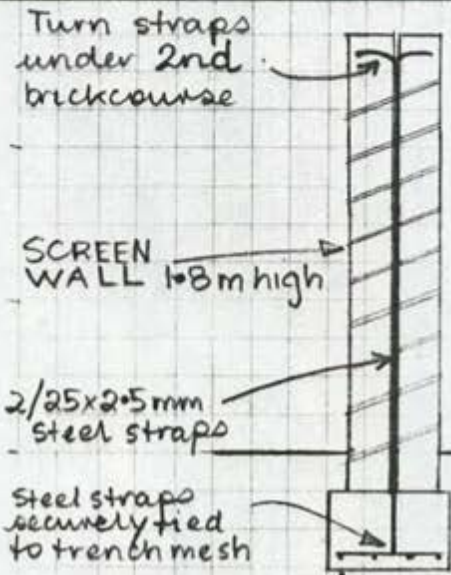 Turn straps
under 2nd
brickcourse
SCREEN
WALL 1•8m high
2/25x2•5mm
steel straps
steel straps
securely tied
to trench mesh